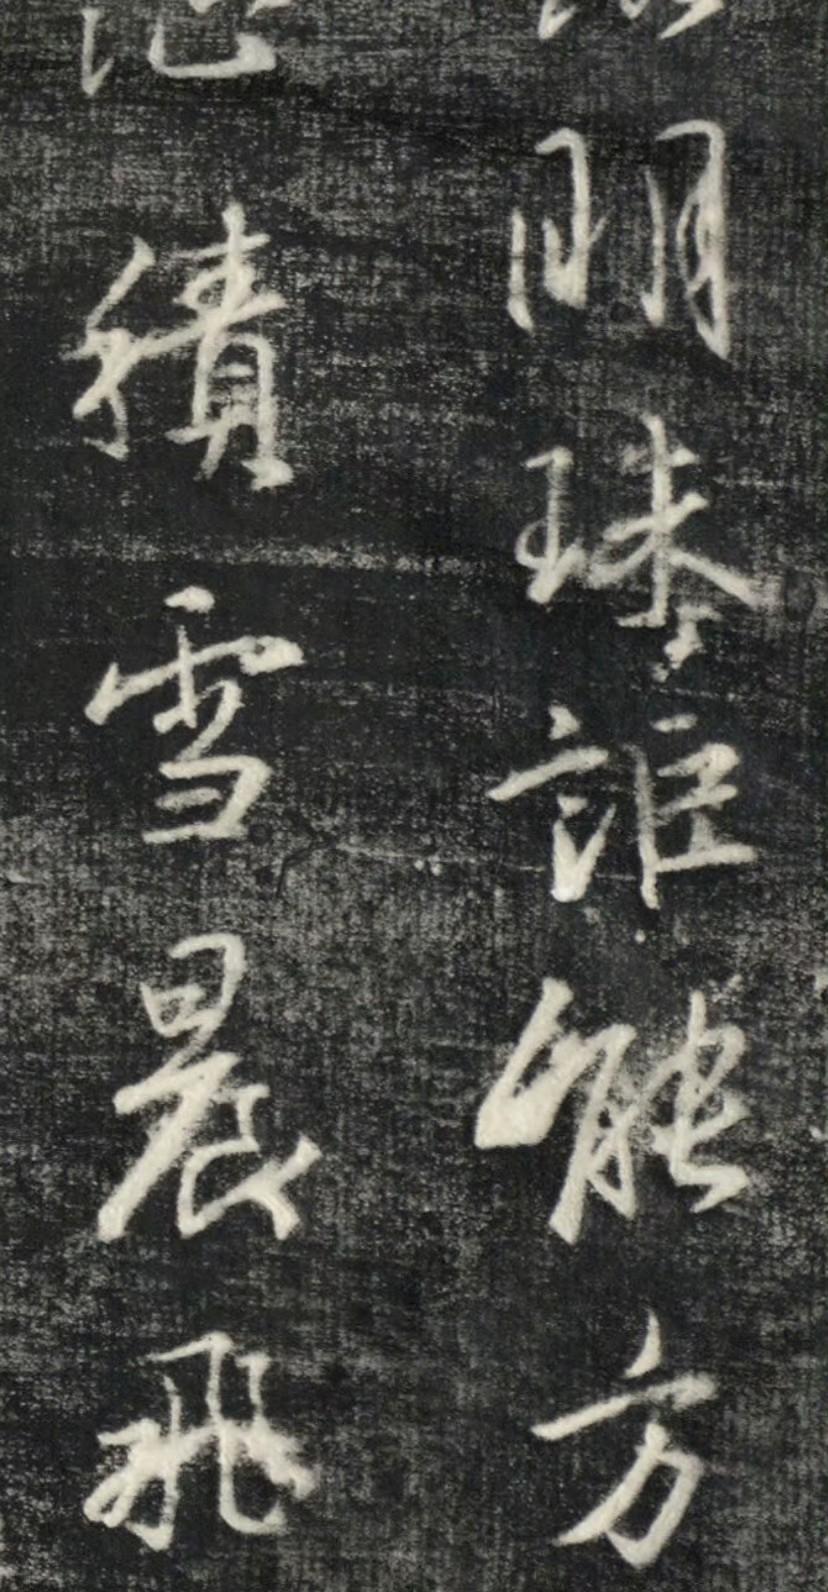 明珠詎能方
積雪晨飛